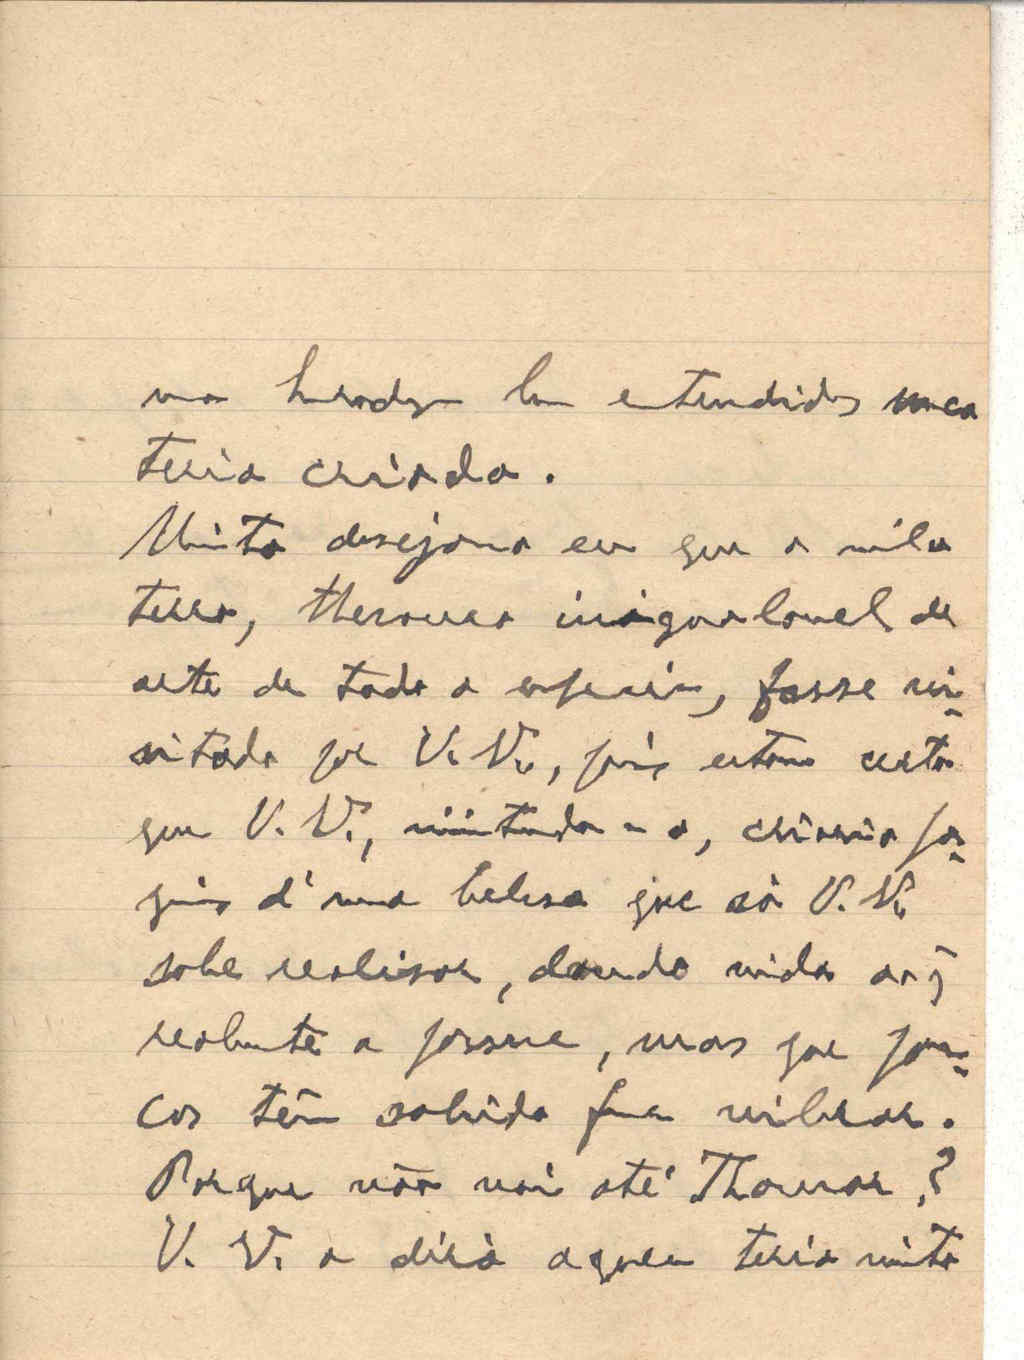 entendidos nunca
teria criado.
Muito desejava eu que a minha
terra, thesouro inigualavel de
arte de toda a especie, fosse vi-
sitada por V. V., pois estou certo
que V. V., visitando-a, criaria pa-
ginas d'uma belesa que só V. V.
sabe realisar, dando vida ao q
realmente a possue, mas que pou-
cos têm sabido fazer vibrar.
Porque não vai até Thomar?
V. V. a dirá a quem teria muito